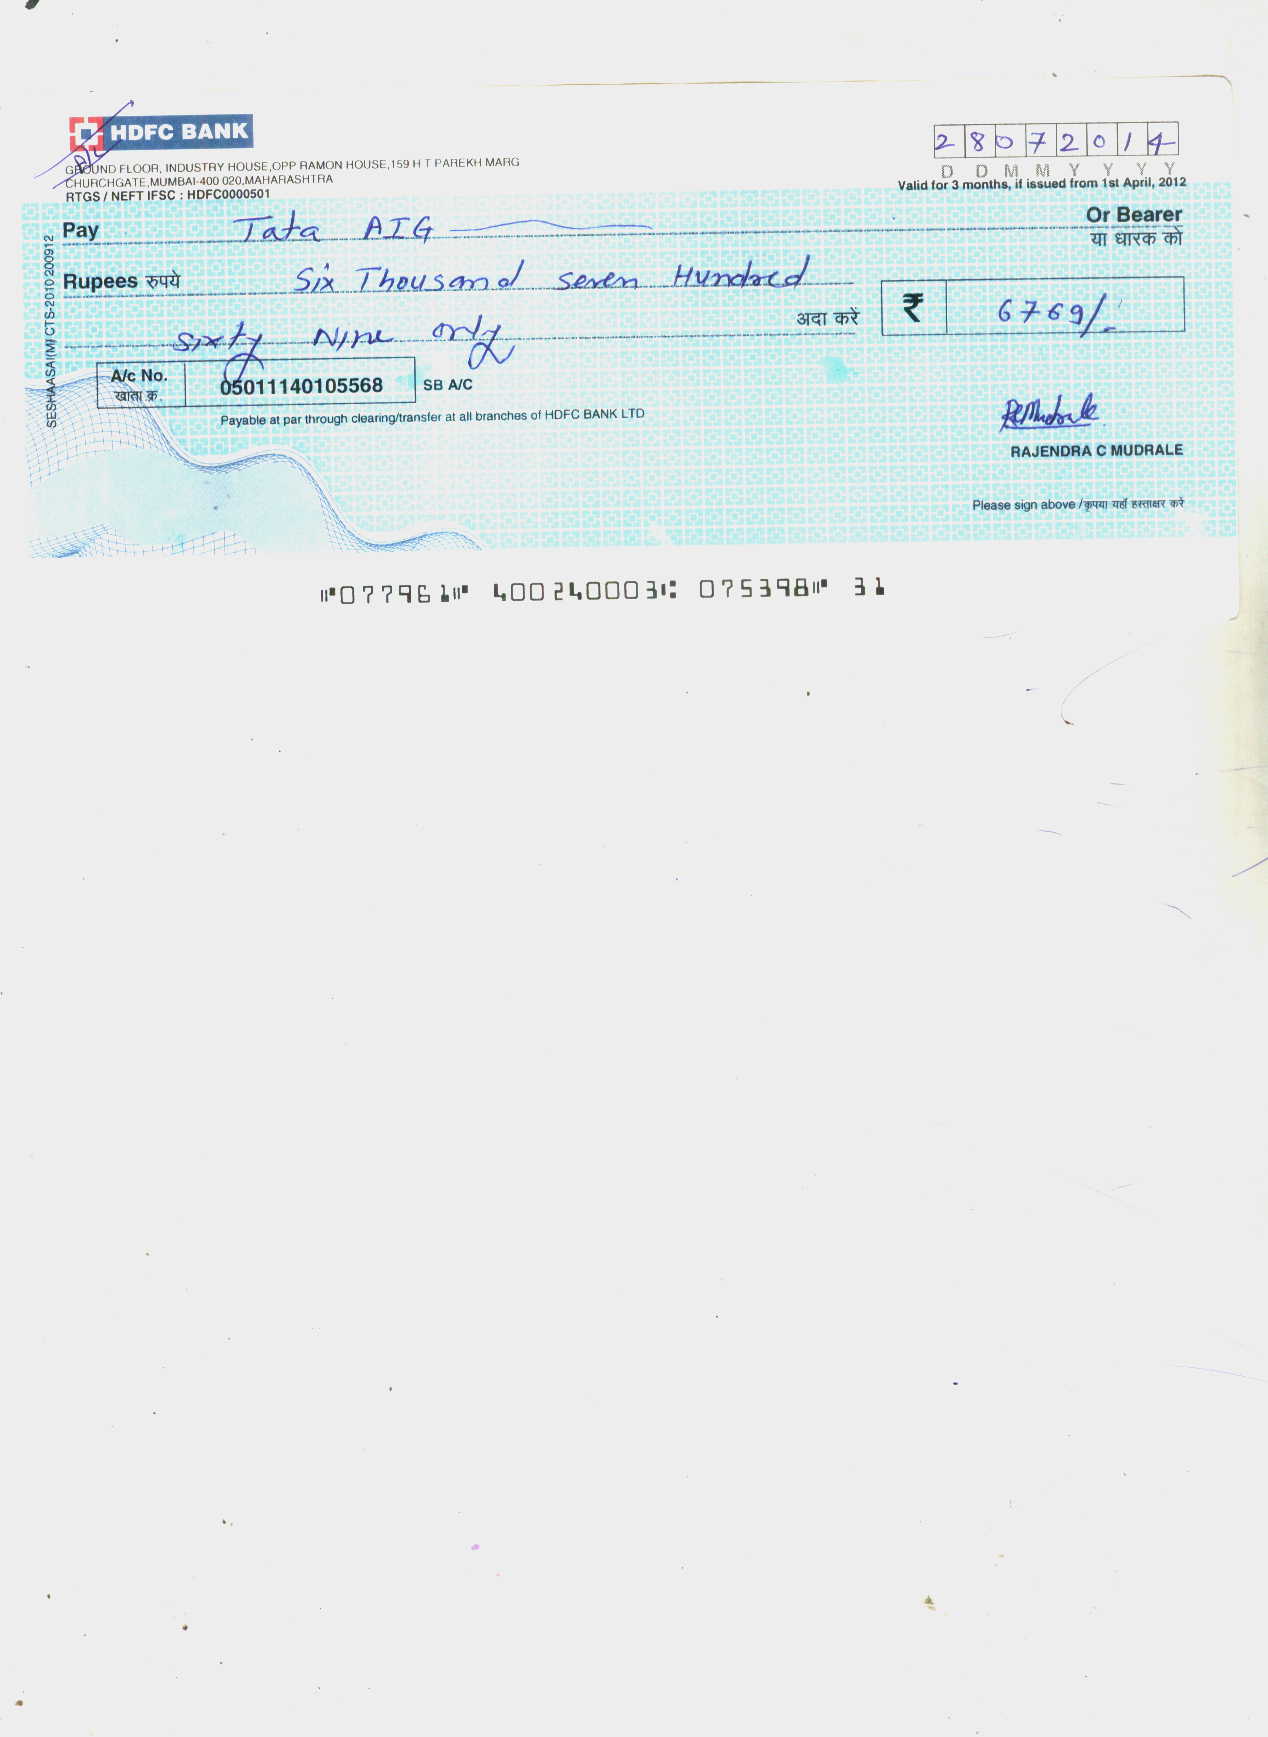 HDFC BANK
A/c
GROUND FLOOR, INDUSTRY HOUSE,OPP RAMON HOUSE,159 H T PAREKH MARG
CHURCHGATE,MUMBAI-400 020,MAHARASHTRA
RTGS / NEFT IFSC : HDFC0000501
28072014
D D M M Y Y Y Y
Valid for 3 months, if issued from 1st April, 2012
Pay Tata AIG Or Bearer
या धारक को
Rupees रुपये Six Thousand seven Hundred
sixty Nine only अदा करें ₹ 6769/-
A/c No. 05011140105568 SB A/C
खाता क्र.
Payable at par through clearing/transfer at all branches of HDFC BANK LTD
RCMudrale
RAJENDRA C MUDRALE
Please sign above /कृपया यहाँ हस्ताक्षर करें
SESHAASAI(M)/CTS-2010 200912
⑈077961⑈ 400240003⑆ 075398⑈ 31